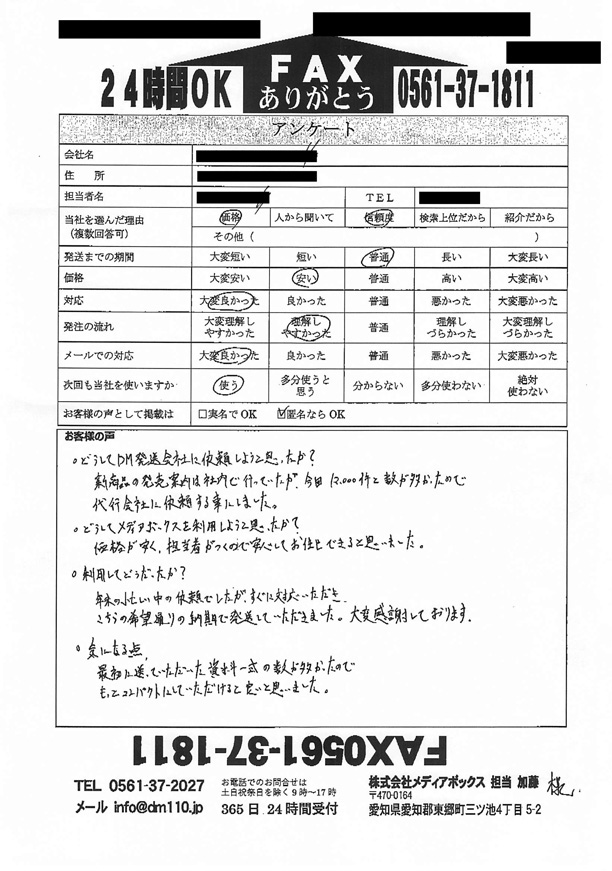 24時間OK
FAX
ありがとう
0561-37-1811
アンケート
会社名
住 所
担当者名 TEL
当社を選んだ理由
（複数回答可）
価格 人から聞いて 信頼度 検索上位だから 紹介だから
その他（ ）
発送までの期間 大変短い 短い 普通 長い 大変長い
価格 大変安い 安い 普通 高い 大変高い
対応 大変良かった 良かった 普通 悪かった 大変悪かった
発注の流れ 大変理解しやすかった 理解しやすかった 普通 理解しづらかった 大変理解しづらかった
メールでの対応 大変良かった 良かった 普通 悪かった 大変悪かった
次回も当社を使いますか 使う 多分使うと思う 分からない 多分使わない 絶対使わない
お客様の声として掲載は □実名でOK ☑匿名ならOK
お客様の声
○どうしてDM発送会社に依頼しようと思ったか？
新商品の発売案内は社内で行っていたが、今回12,000件と数が多かったので
代行会社に依頼する事にしました。
○どうしてメディアボックスを利用しようと思ったか？
価格が安く、担当者がつくので安心してお任せできると思いました。
○利用してどうだったか？
年末の忙しい中の依頼でしたが、すぐに対応いただき、
こちらの希望通りの納期で発送していただきました。大変感謝しております。
○気になる点
最初に送っていただいた資料一式の数が多かったので
もっとコンパクトにしていただけると良いと思いました。
FAX0561-37-1811
TEL 0561-37-2027
メール info@dm110.jp
お電話でのお問合せは
土日祝祭日を除く9時～17時
365日.24時間受付
株式会社メディアボックス 担当 加藤 様
〒470-0164
愛知県愛知郡東郷町三ツ池4丁目5-2